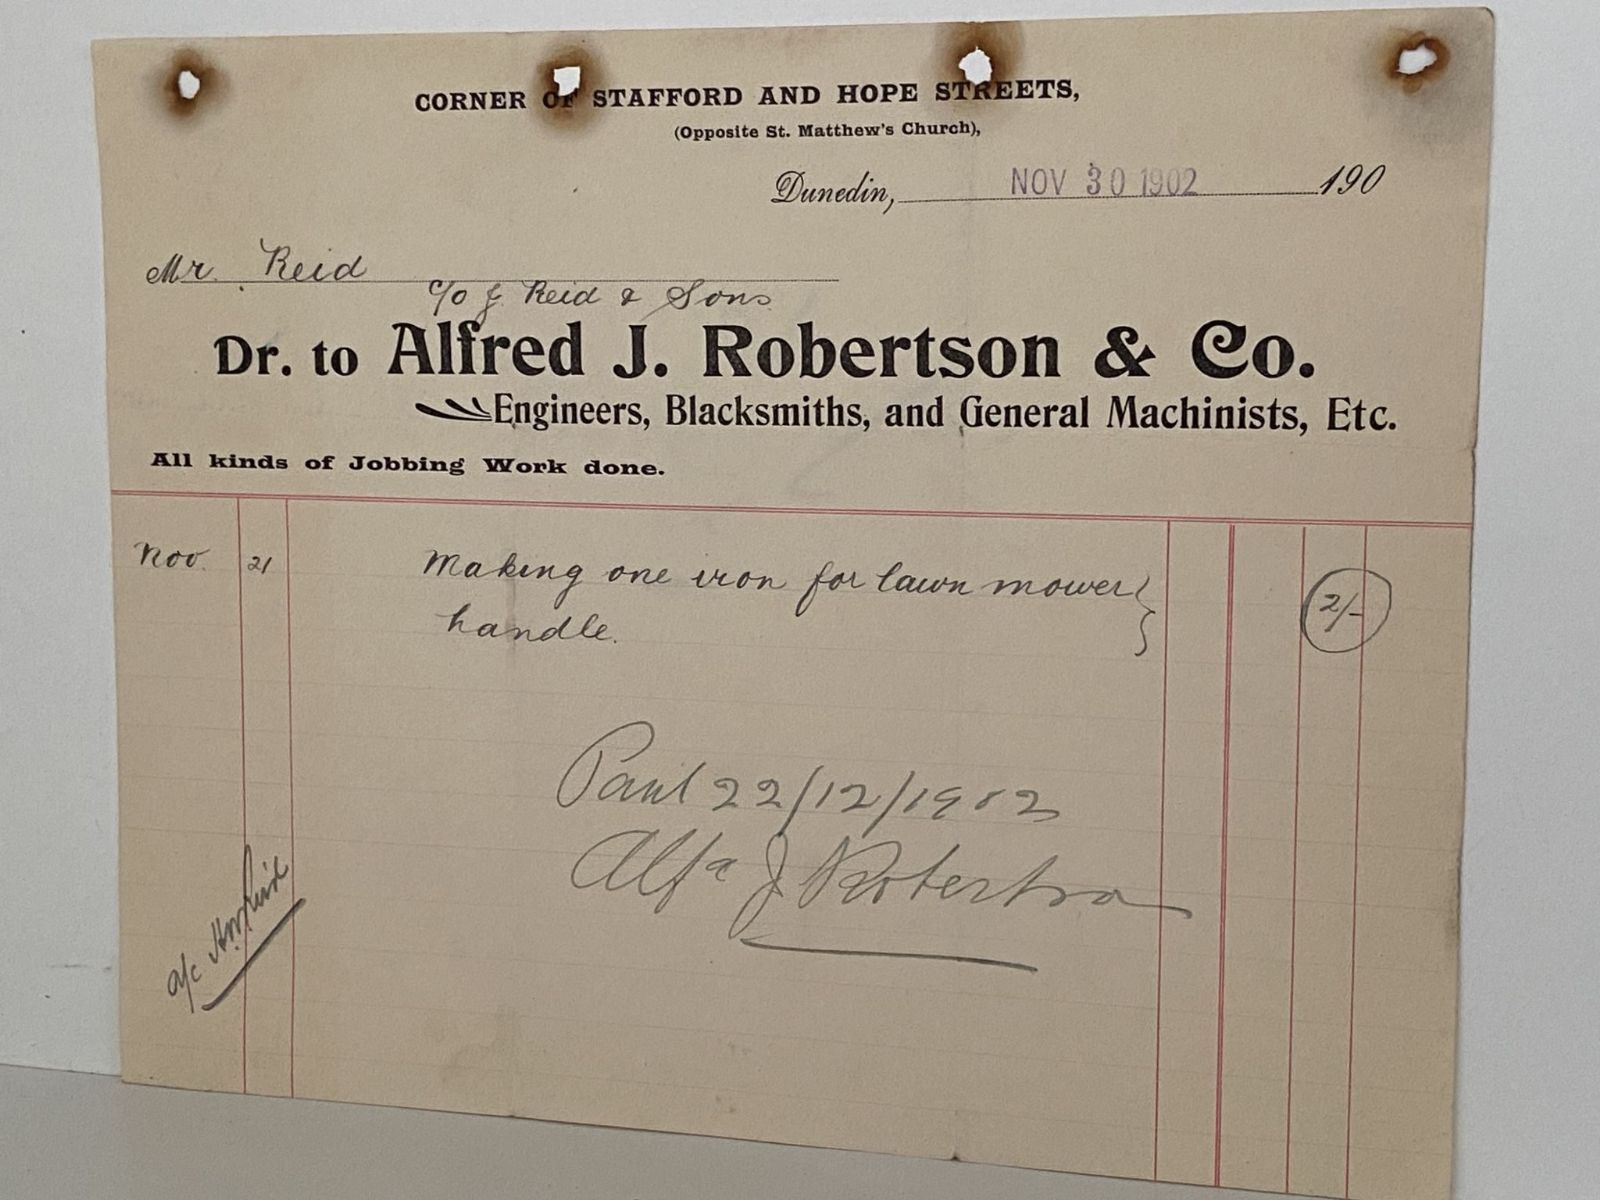 CORNER OF STAFFORD AND HOPE STREETS,
(Opposite St. Matthew's Church),
Dunedin, NOV 30 1902 190
Mr. Reid
c/o J. Reid & Sons
Dr. to Alfred J. Robertson & Co.
Engineers, Blacksmiths, and General Machinists, Etc.
All kinds of Jobbing Work done.
Nov. 21 Making one iron for lawn mower 2/-
handle.
Paid 22/12/1902
Alfd J Robertson
a/c Reid